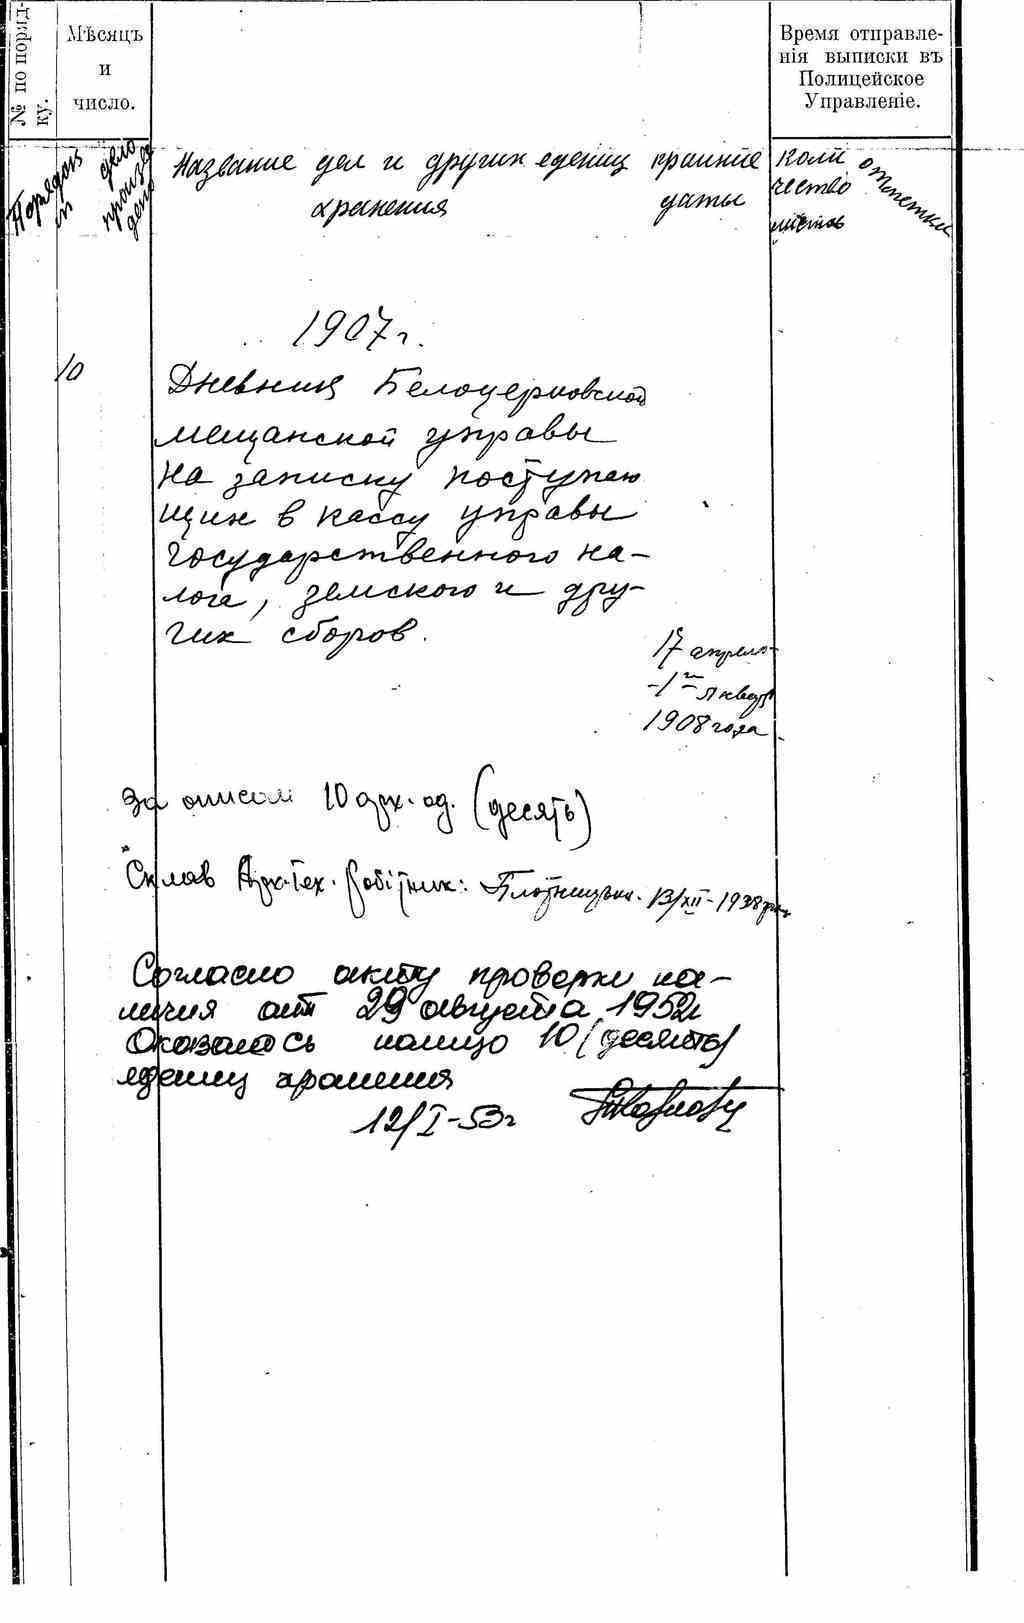 № по поряд-
ку.
Мѣсяцъ
и
число.
Время отправле-
нія выписки въ
Полицейское
Управленіе.
Название дел и других едениц
хранения
крайние
даты
Коли
чество
листов
отметки
1907 г.
10
Дневник Белоцерковской
мещанской управы
на записку поступаю
щих в кассу управы
государственного на-
лога, земского и дру-
гих сборов.
17 апреля-
-1го января
1908 года
За описом 10 арх. од. (десять)
Склав Арх. Тех. Робітник: Плотницька. 13/XII-1938 р.
Согласно акту проверки на-
личия от 29 августа 1952 г
Оказалось налицо 10 (десять)
едениц хранения
12/I-53 г